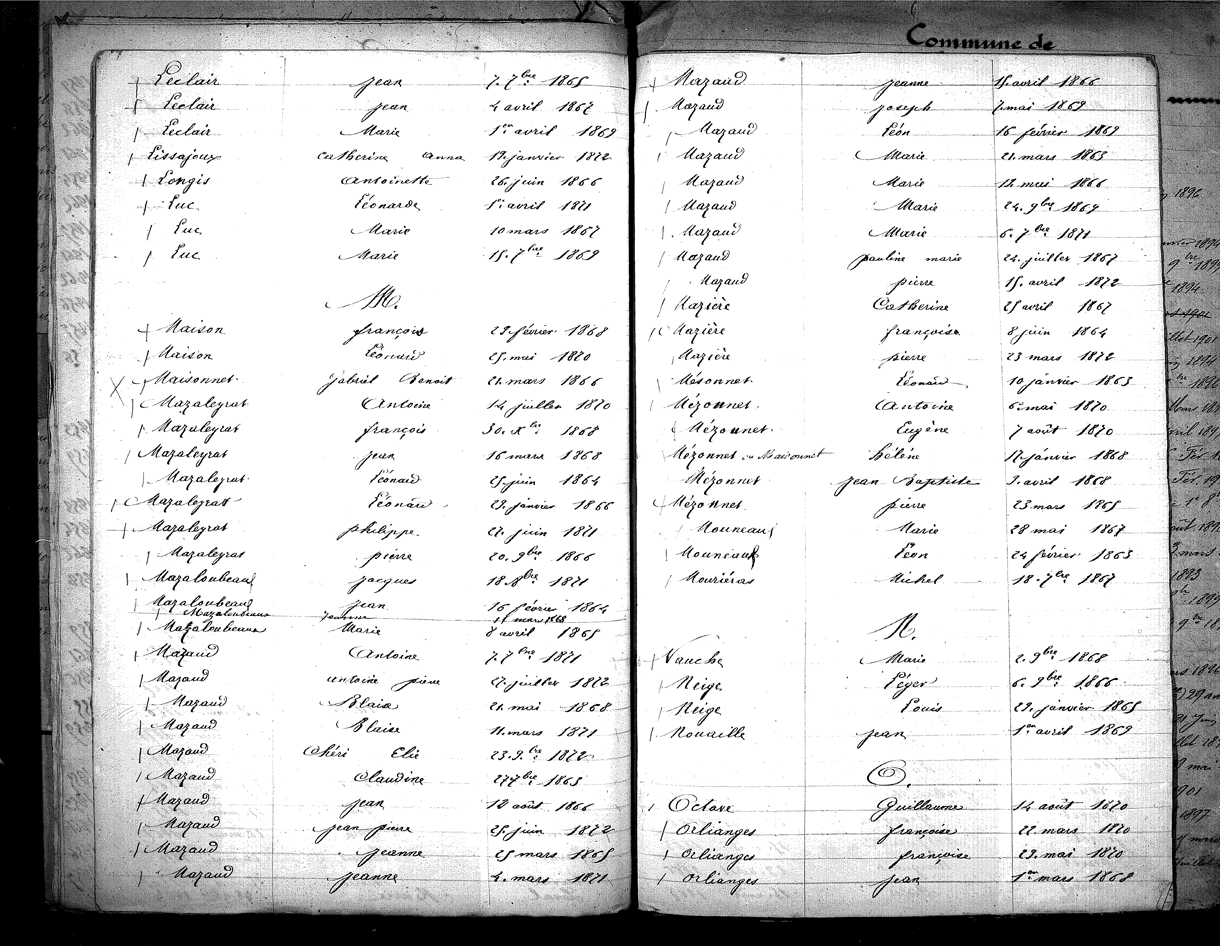 Leclair jean 7. 7bre 1865
Leclair jean 4 avril 1867
Leclair Marie 1er avril 1869
Lissajoux Catherine anna janvier 1872
Longis Antoinette 26. juin 1866
Luc Léonarde 1er avril 1871
Luc Marie 10 mars 1867
Luc Marie 15. 7bre 1869
M.
Maison françois février 1868
Maison Léonard 25. mai 1870
Maisonnet. Gabriel Benoit 21. mars 1866
Mazaleyrat Antoine 14 juillet 1870
Mazaleyrat françois 30. Xbre 1868
Mazaleyrat jean 16 mars 1868
Mazaleyrat Léonard 25. juin 1864
Mazaleyrat Léonard janvier 1866
Mazaleyrat philippe. juin 1871
Mazaleyrat pierre 20. 9bre 1866
Mazaloubeaud jacques 18. 8bre 1871
Mazaloubeaud jean 16 février 1864
Mazaloubeaud Jeanne mars 1868
Mazaloubeaud Marie 8 avril 1865
Mazaud Antoine 7. 7bre 1871
Mazaud antoine pierre juillet 1872
Mazaud Blaise 21. mai 1868
Mazaud Blaise 11. mars 1871
Mazaud Chéri Elie 23. 9bre 1872
Mazaud Claudine 27 7bre 1863
Mazaud jean août 1866
Mazaud jean pierre 25. juin 1872
Mazaud jeanne 25 mars 1865
Mazaud jeanne 4. mars 1871
Commune de
Mazaud jeanne 15. avril 1866
Mazaud joseph 7. mai 1869
Mazaud Léon 16 février 1869
Mazaud Marie 21. mars 1863
Mazaud Marie mai 1866
Mazaud Marie 24. 9bre 1869
Mazaud Marie 6. 7bre 1871
Mazaud pauline marie 24. juillet 1867
Mazaud pierre 15. avril 1872
Mazière Catherine 25 avril 1867
Mazière françoise 8 juin 1864
Mazière pierre 23 mars 1872
Mésonnet. Léonard 10 janvier 1863
Mézonnet. Antoine 6. mai 1870
Mézonnet. Eugène 7 août 1870
Mézonnet ou Maisonnet hélène 17. janvier 1868
Mézonnet jean Baptiste 3. avril 1868
Mézonnet. pierre 23 mars 1865
Mouneaud Marie 28 mai 1867
Mouneaud Léon 24 février 1863
Mouriéras Michel 18. 7bre 1867
N.
Nauche Marie 2. 9bre 1868
Neige Léger 6. 9bre 1866
Neige Louis janvier 1865
Nouaille jean 1er avril 1869
O.
Octave Guillaume 14 août 1870
Orlianges françoise 22 mars 1870
Orlianges françoise mai 1870
Orlianges jean 1er mars 1868